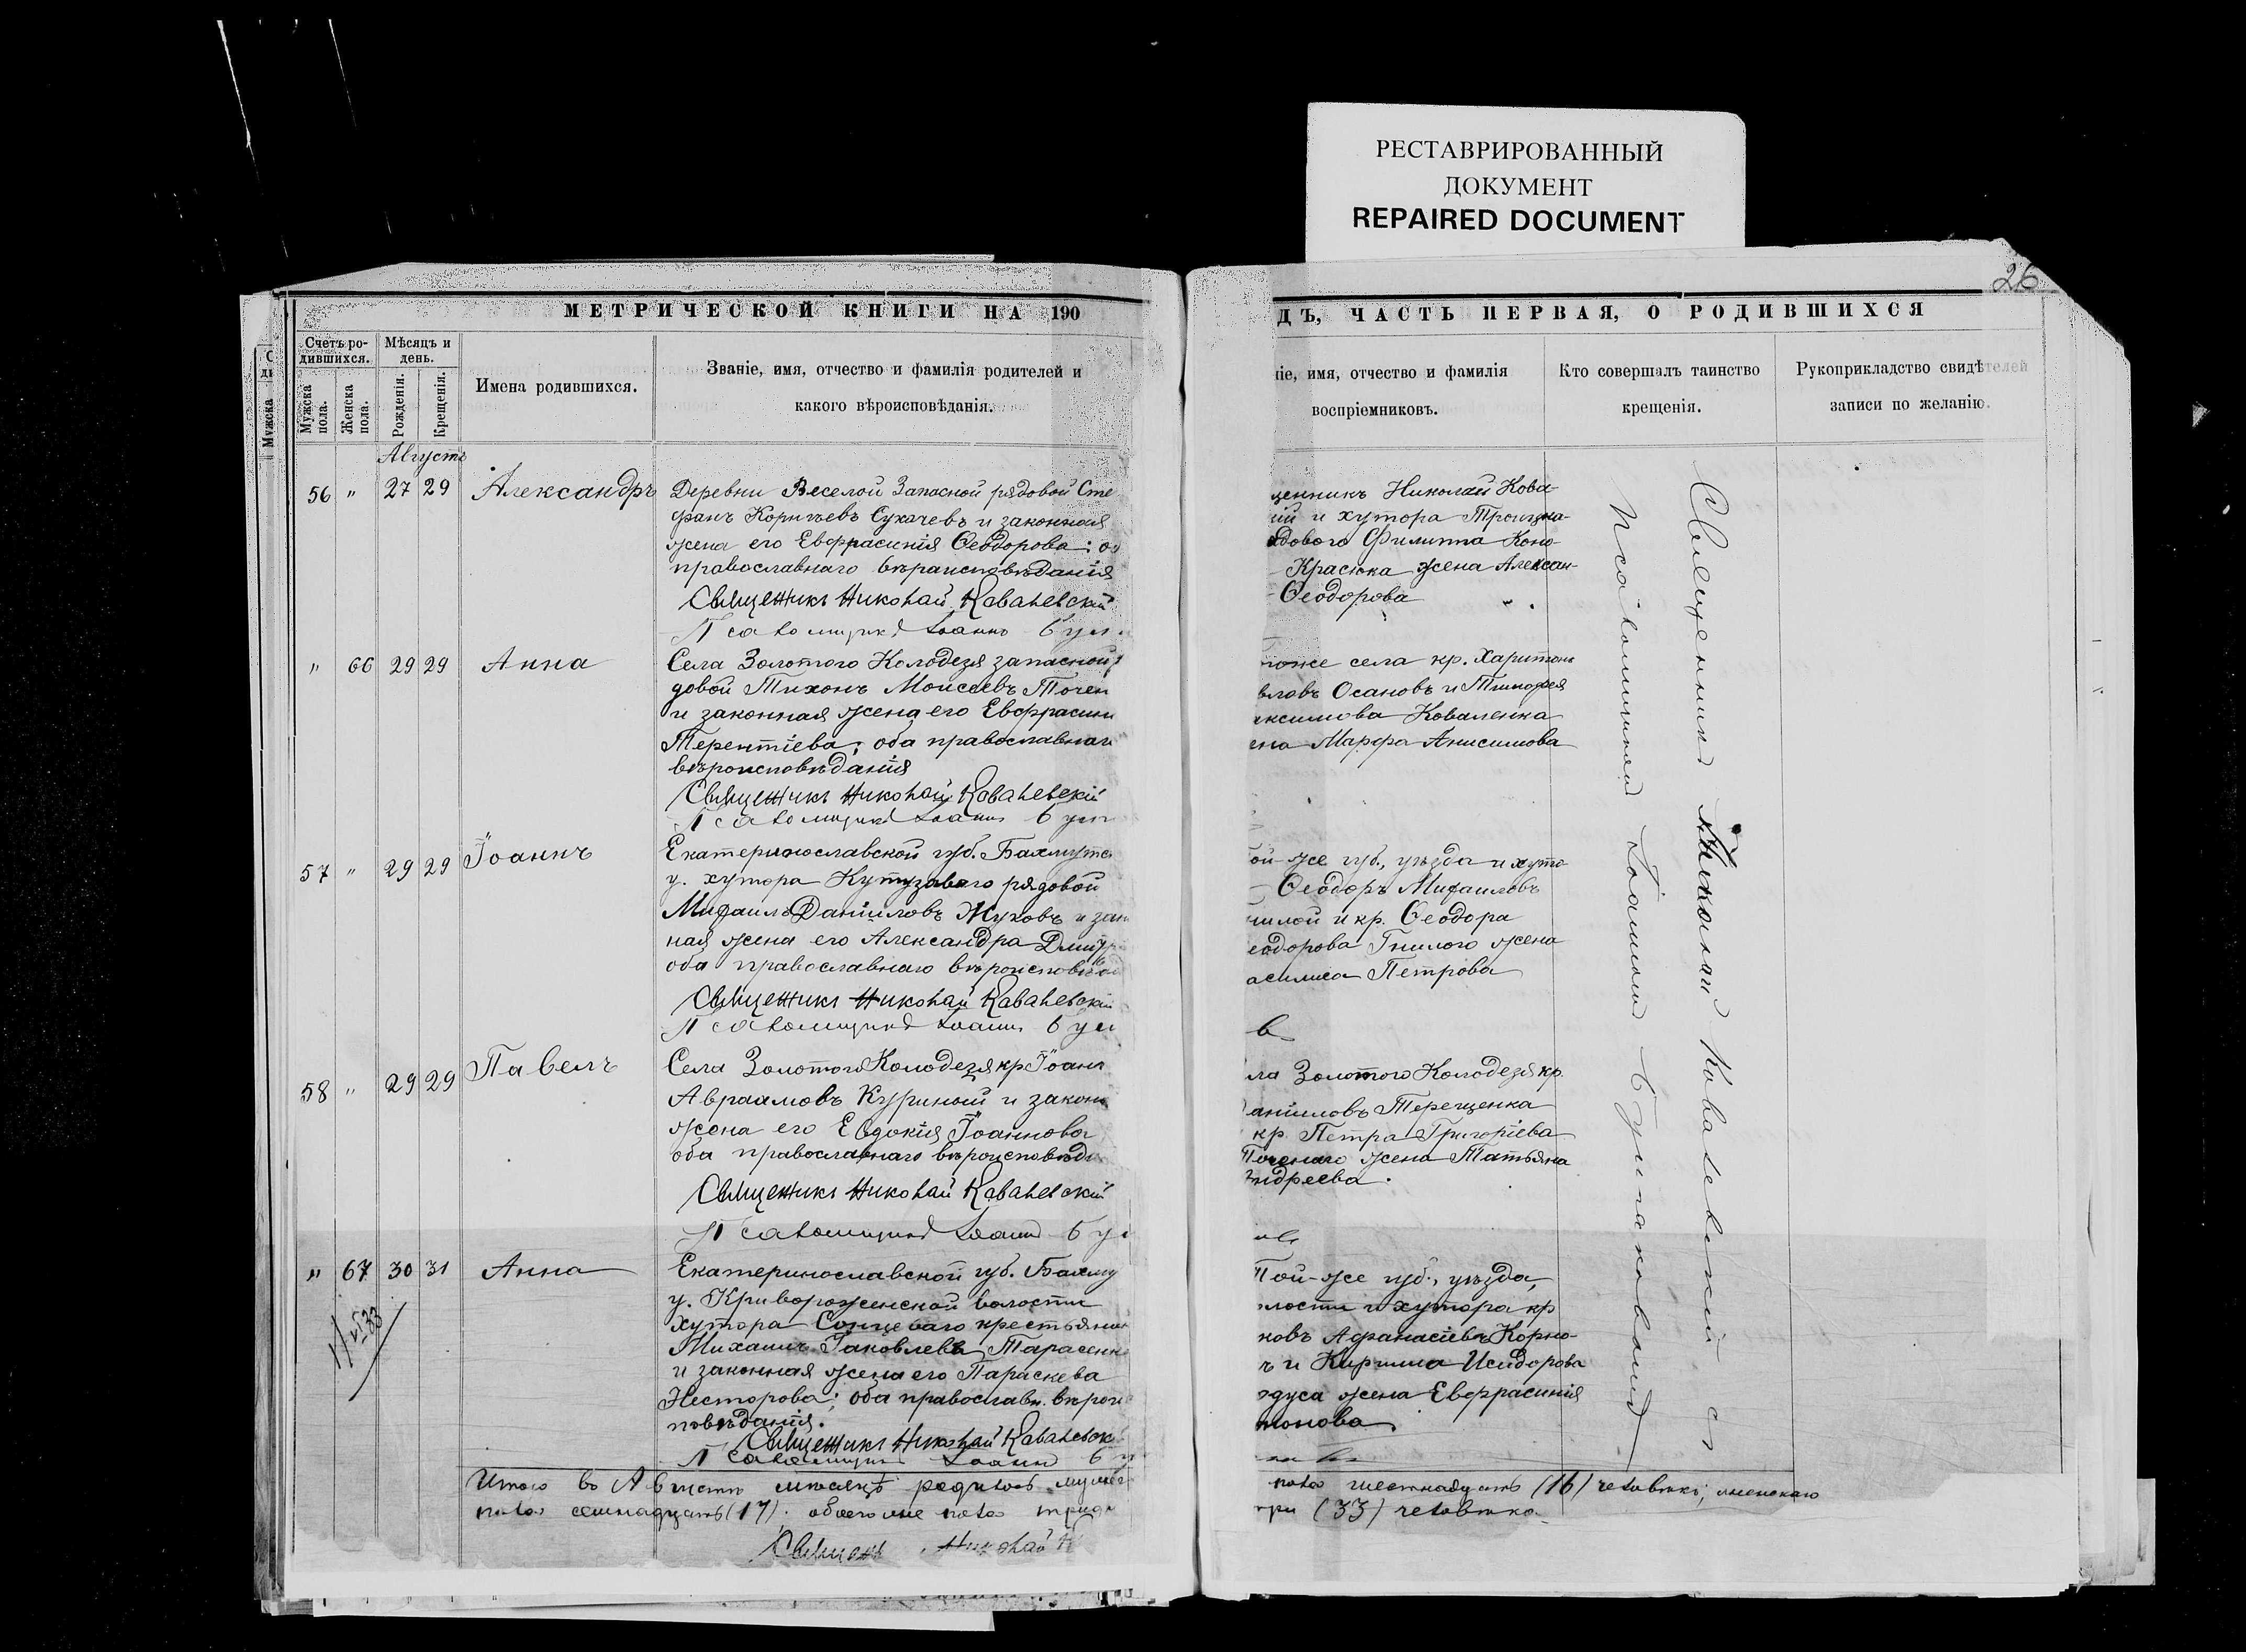 РЕСТАВРИРОВАННЫЙ
ДОКУМЕНТ
REPAIRED DOCUMENT
26
МЕТРИЧЕСКОЙ КНИГИ НА 190
ДЪ, ЧАСТЬ ПЕРВАЯ, О РОДИВШИХСЯ
Счетъ ро-
дившихся.
Мужска
пола.
Женска
пола.
Мѣсяцъ и
день.
Рожденія.
Крещенія.
Имена родившихся.
Званіе, имя, отчество и фамилія родителей и
какого вѣроисповѣданія.
іе, имя, отчество и фамилія
воспріемниковъ.
Кто совершалъ таинство
крещенія.
Рукоприкладство свидѣтелей
записи по желанію.
Августъ
56 " 27 29 Александръ
Деревни Веселой Запасной рядовой Сте
фанъ Корнѣевъ Сукачевъ и законная
жена его Евфрасинія Ѳеодорова; о
православнаго вѣраисповѣданія
Священникъ Николай Ковалевскій
Псаломщикъ Іоаннъ
ценникъ Николай Кова-
ій и хутора Троицка-
дового Филиппа Коно-
Красюка жена Алексан-
Ѳеодорова
" 66 29 29 Анна
Села Золотого Колодезя запасной
довой Тихонъ Моисеевъ Точен
и законная жена его Евфрасин
Терентіева; оба православнаг
вѣроисповѣданія
Священникъ Николай Ковалевскій
Псаломщикъ Іоаннъ
тоже села кр. Харитонъ
вловъ Осановъ и Тимофея
аксимова Коваленка
ена Марфа Анисимова
57 " 29 29 Іоаннъ
Екатеринославской губ. Бахмутс
у. хутора Кутузоваго рядовой
Михаилъ Даніиловъ Жуковъ и зак
ная жена его Александра Дмитр
оба православнаго вѣроисповѣд
Священникъ Николай Ковалевскій
Псаломщикъ Іоаннъ
ой-же губ., уѣзда и хуто
Ѳеодоръ Михаиловъ
нилой и кр. Ѳеодора
еодорова Гнилого жена
асилиса Петрова
въ
58 " 29 29 Павелъ
Села Золотого Колодезя кр Іоанъ
Авраамовъ Куриной и закон
жена его Евдокія Іоаннова
оба православнаго вѣроисповѣда
Священникъ Николай Ковалевскій
Псаломщикъ Іоаннъ
ла Золотого Колодезя кр.
аніиловъ Терещенка
кр. Петра Григоріева
Точенаго жена Татьяна
Андреева.
" 67 30 31 Анна
Екатеринославской губ. Бахму
у. Криворожской волости
хутора Сонцеваго крестьянин
Михаилъ Іаковлевъ Тарасенк
и законная жена его Параскева
Несторова; оба православн. вѣроис
повѣданія.
Священникъ Николай Ковалевск
Псаломщикъ Іоаннъ
Той-же губ., уѣзда,
лости и хутора кр
новъ Афанасіевъ Корно-
ъ и Кирилла Исидорова
дуса жена Евфрасинія
тонова
Священникъ Николай Ковалевскій съ
Псаломщикомъ Іоанномъ
Итого въ Августѣ мѣсяцѣ родилось мужеск
пола шестнадцать (16) человѣкъ, женскаго
пола семнадцать (17). обоего же пола тридц
три (33) человѣка.
Священ Николай К